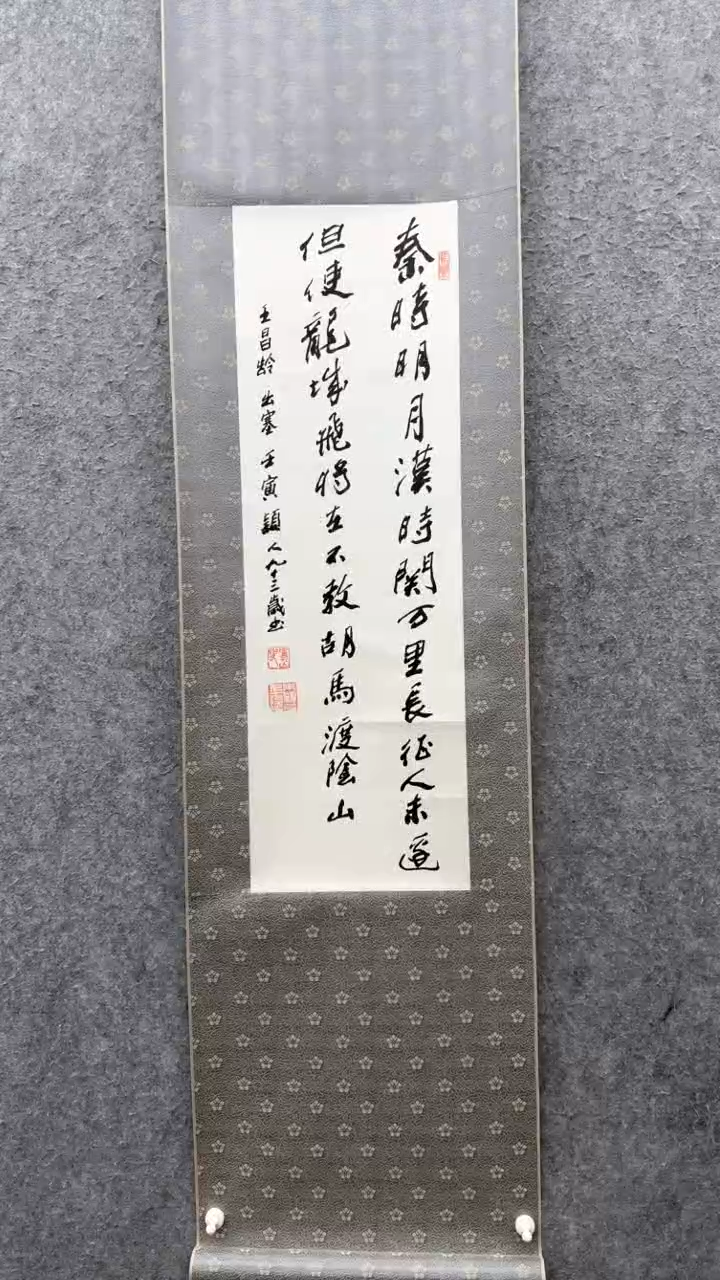 秦時明月漢時関万里長征人未還
但使龍城飛将在不教胡馬渡陰山
王昌龄 出塞 壬寅 穎人九十三歲书